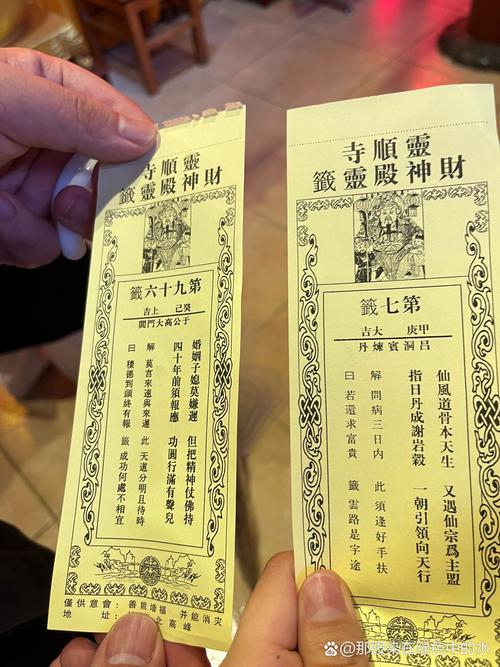 靈順寺
財神殿靈籤
第九十六籤
癸己 上吉
于公高大門閭
婚姻子媳莫嫌遲 但把精神仗佛持
四十年前須報應 功圓行滿有聲兒
解 莫言來速與來遲 此 天道分明且待時
曰 積德到頭終有報 籤 成功何處不相宜
僅供意會：善能增福 并能消灾
地 址： 北高峰
靈順寺
財神殿靈籤
第七籤
甲庚 大吉
呂洞賓煉丹
仙風道骨本天生 又遇仙宗爲主盟
指日丹成謝岩穀 一朝引領向天行
解 問病三日內 此 須逢好手扶
曰 若還求富貴 籤 雲路是宇途